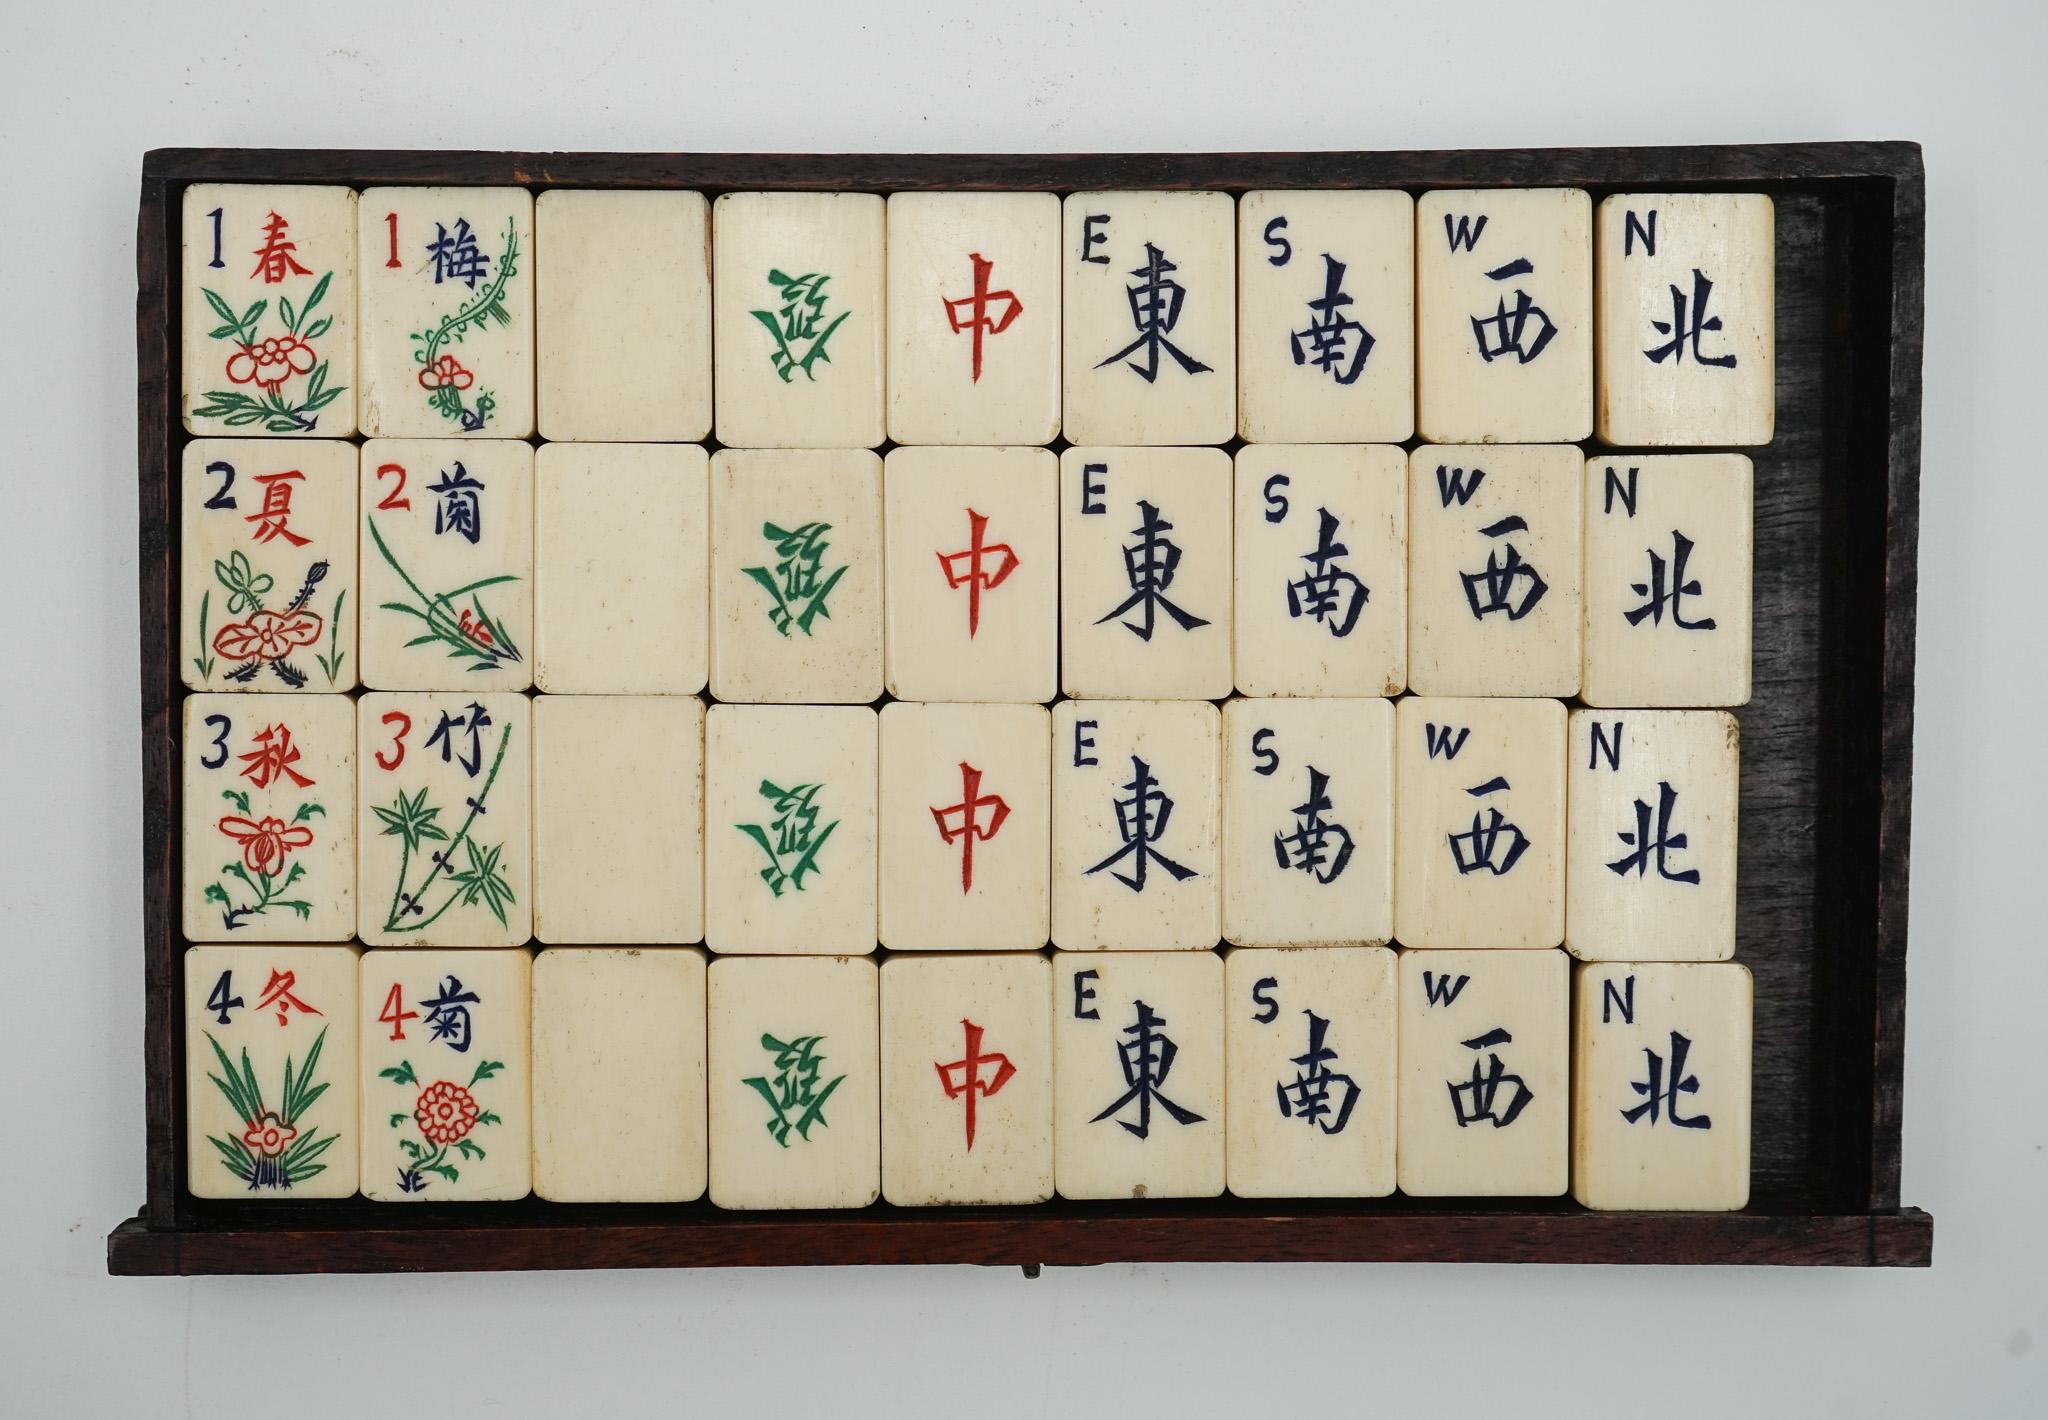 1 春 1 梅 發 中 E 東 S 南 W 西 N 北
2 夏 2 蘭 發 中 E 東 S 南 W 西 N 北
3 秋 3 竹 發 中 E 東 S 南 W 西 N 北
4 冬 4 菊 發 中 E 東 S 南 W 西 N 北